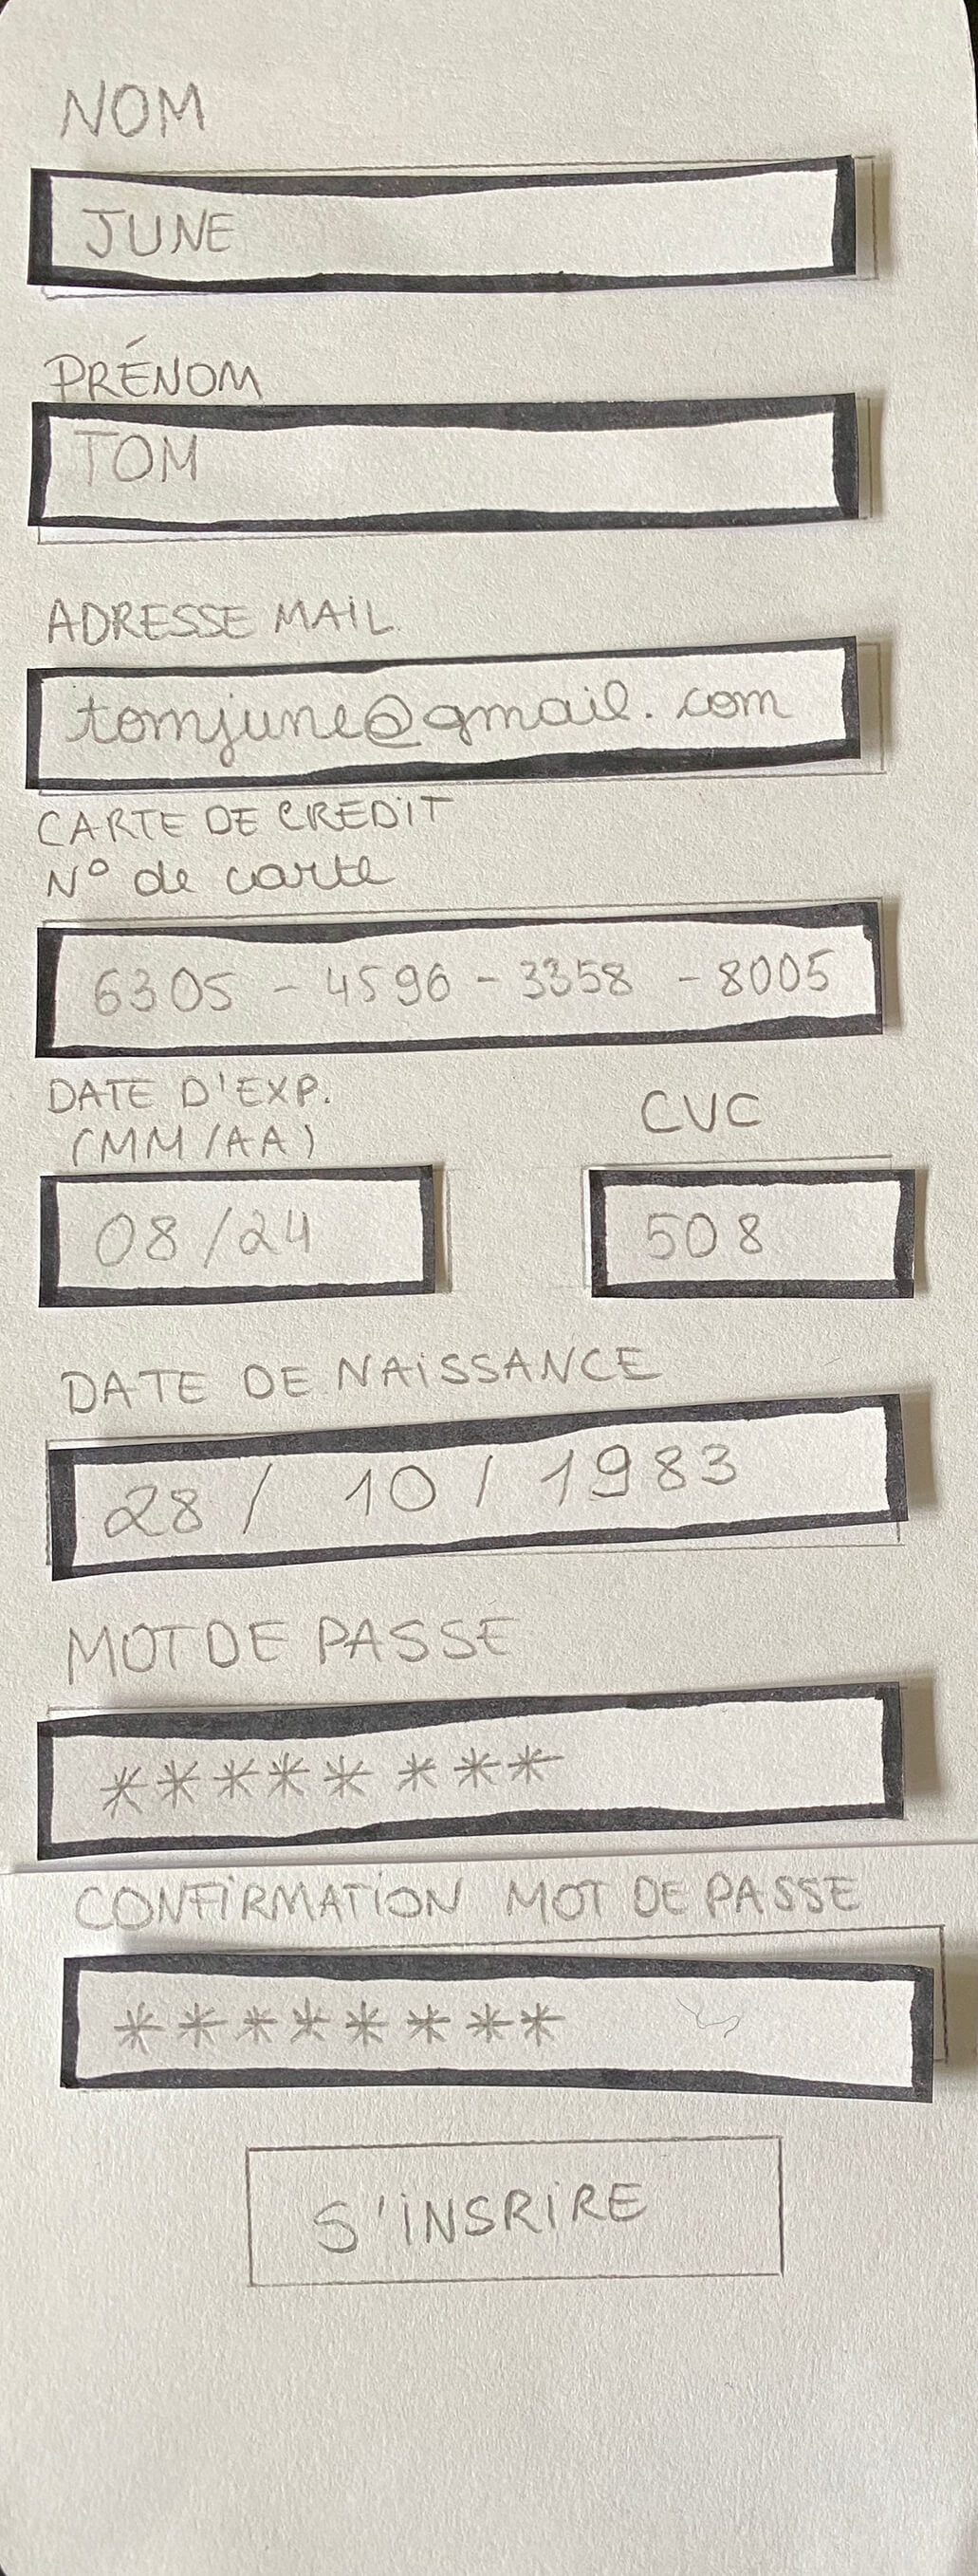 NOM
JUNE
PRÉNOM
TOM
ADRESSE MAIL
tomjune@gmail.com
CARTE DE CREDIT
N° de carte
6305 - 4596 - 3358 - 8005
DATE D'EXP. CVC
(MM/AA)
08/24 508
DATE DE NAISSANCE
28 / 10 / 1983
MOT DE PASSE
********
CONFIRMATION MOT DE PASSE
********
S'INSRIRE